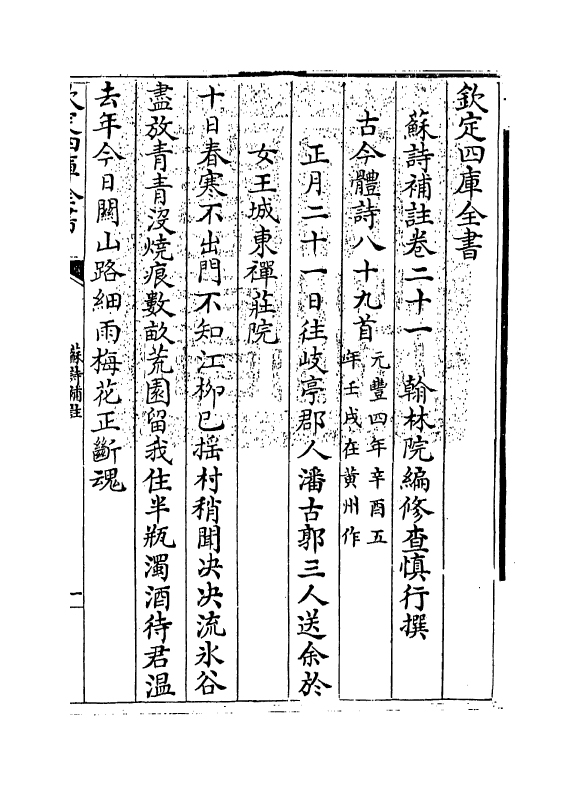 欽定四庫全書
蘇詩補註卷二十一　翰林院編修查慎行撰
古今體詩八十九首
元豐四年辛酉五
年壬戌在黄州作
正月二十一日往岐亭郡人潘古郭三人送余於
女王城東禪莊院
十日春寒不出門不知江栁已摇村稍聞决决流氷谷
盡放青青没燒痕數畝荒園留我住半瓶濁酒待君温
去年今日闗山路細雨梅花正斷魂
欽定四庫全書
蘇詩補註
一